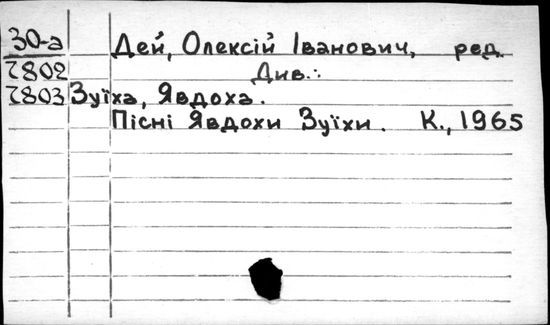 30-а Дей, Олексій Іванович, ред.
7802 Див.:
7803 Зуїха, Явдоха.
Пісні Явдохи Зуїхи. К., 1965